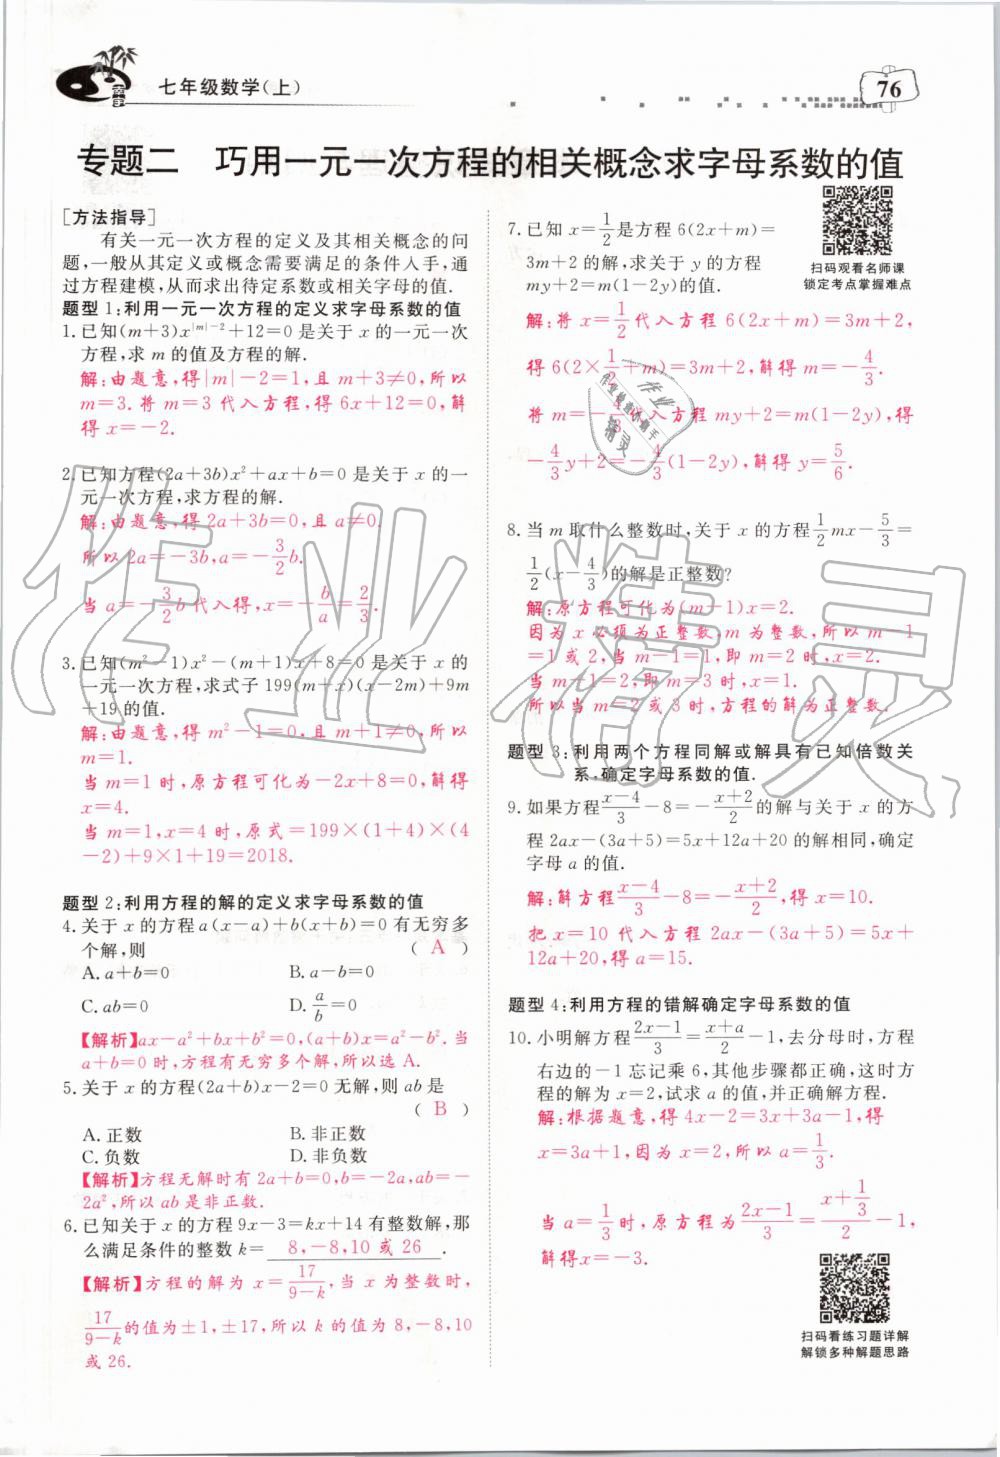 七年级数学(上)
76
专题二　巧用一元一次方程的相关概念求字母系数的值
[方法指导]
有关一元一次方程的定义及其相关概念的问
题,一般从其定义或概念需要满足的条件入手,通
过方程建模,从而求出待定系数或相关字母的值.
题型 1:利用一元一次方程的定义求字母系数的值
1.已知(m+3)x^{|m|-2}+12=0 是关于 x 的一元一次
方程,求 m 的值及方程的解.
解:由题意,得|m|-2=1,且 m+3≠0,所以
m=3.将 m=3 代入方程,得 6x+12=0,解
得 x=-2.
2.已知方程(2a+3b)x²+ax+b=0 是关于 x 的一
元一次方程,求方程的解.
解:由题意,得 2a+3b=0,且 a≠0.
所以 2a=-3b,a=-3/2 b.
当 a=-3/2 b 代入得,x=-b/a=2/3.
3.已知(m²-1)x²-(m+1)x+8=0 是关于 x 的
一元一次方程,求式子 199(m+x)(x-2m)+9m
+19 的值.
解:由题意,得 m²-1=0,且 m+1≠0,所以
m=1.
当 m=1 时,原方程可化为-2x+8=0,解得
x=4.
当 m=1,x=4 时,原式=199×(1+4)×(4
-2)+9×1+19=2018.
题型 2:利用方程的解的定义求字母系数的值
4.关于 x 的方程 a(x-a)+b(x+b)=0 有无穷多
个解,则 ( A )
A.a+b=0　B.a-b=0
C.ab=0　D.a/b=0
【解析】ax-a²+bx+b²=0,(a+b)x=a²-b².当
a+b=0 时,方程有无穷多个解,所以选 A.
5.关于 x 的方程(2a+b)x-2=0 无解,则 ab 是
( B )
A.正数　B.非正数
C.负数　D.非负数
【解析】方程无解时有 2a+b=0,b=-2a,ab=-
2a²,所以 ab 是非正数.
6.已知关于 x 的方程 9x-3=kx+14 有整数解,那
么满足条件的整数 k= 8,-8,10 或 26 .
【解析】方程的解为 x=17/(9-k),当 x 为整数时,
17/(9-k)的值为±1,±17,所以 k 的值为 8,-8,10
或 26.
7.已知 x=1/2是方程 6(2x+m)=
3m+2 的解,求关于 y 的方程
my+2=m(1-2y)的值.
扫码观看名师课
锁定考点掌握难点
解:将 x=1/2代入方程 6(2x+m)=3m+2,
得 6(2×1/2+m)=3m+2,解得 m=-4/3.
将 m=-4/3代入方程 my+2=m(1-2y),得
-4/3y+2=-4/3(1-2y),解得 y=5/6.
8.当 m 取什么整数时,关于 x 的方程1/2mx-5/3=
1/2(x-4/3)的解是正整数?
解:原方程可化为(m-1)x=2.
因为 x 必须为正整数,m 为整数,所以 m-1
=1 或 2,当 m-1=1,即 m=2 时,x=2.
当 m-1=2,即 m=3 时,x=1.
所以当 m=2 或 3 时,方程的解为正整数.
题型 3:利用两个方程同解或解具有已知倍数关
系,确定字母系数的值.
9.如果方程(x-4)/3-8=-(x+2)/2的解与关于 x 的方
程 2ax-(3a+5)=5x+12a+20 的解相同,确定
字母 a 的值.
解:解方程(x-4)/3-8=-(x+2)/2,得 x=10.
把 x=10 代入方程 2ax-(3a+5)=5x+
12a+20,得 a=15.
题型 4:利用方程的错解确定字母系数的值
10.小明解方程(2x-1)/3=(x+a)/2-1,去分母时,方程
右边的-1 忘记乘 6,其他步骤都正确,这时方
程的解为 x=2,试求 a 的值,并正确解方程.
解:根据题意,得 4x-2=3x+3a-1,得
x=3a+1,因为 x=2,所以 a=1/3.
当 a=1/3时,原方程为(2x-1)/3=(x+1/3)/2-1,
解得x=-3.
扫码看练习题详解
解锁多种解题思路
作业精灵